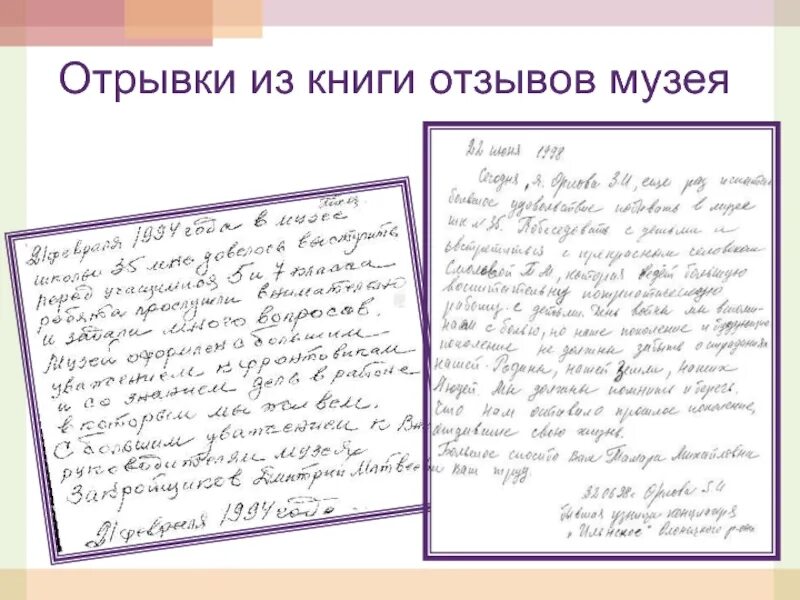 Отрывки из книги отзывов музея
21 февраля 1994 года в музее
школы 35 мне довелось выступить
перед учащимися 5 и 7 класса
ребята прослушали внимательно
и задали много вопросов.
Музей оформлен с большим
уважением к фронтовикам
и со знанием дела в районе
в котором мы живем.
С большим уважением к
руководителям музея
Закройщиков Дмитрий Матвее
21 февраля 1994 года.
22 июня 1998
Сегодня, я Орлова З.И, еще раз испытала
большое удовольствие побывать в музее
шк N 35. Побеседовать с детьми и
встретиться с прекрасным человеком
Смоловой Т М, которая ведет большую
воспитательную патриотическую
работу с детьми. День войны мы вспоми-
наем с болью, но наше поколение и будующее
поколение не должны забыть о страданиях
нашей Родины, нашей Земли, наших
Людей. Мы должны помнить и беречь
Что нам оставило прошлое поколение,
отдавшие свою жизнь.
Большое спасибо Вам Тамара Михайловна
за Ваш труд.
22.06.98г Орлова З.И
бывшая узница концлагеря
"Ильинское" Олонецкого р-на